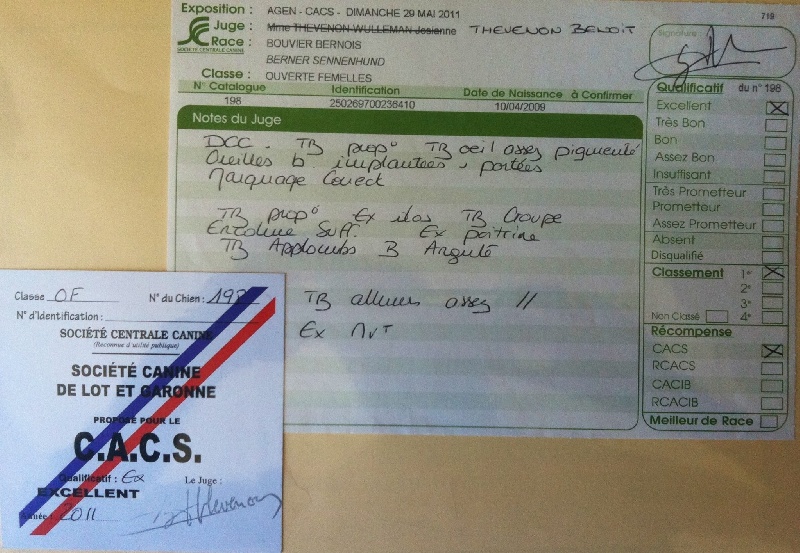 Exposition : AGEN - CACS - DIMANCHE 29 MAI 2011
719
Juge : Mme THEVENON-WULLEMAN Josienne THEVENON BENOIT
Race : BOUVIER BERNOIS
SOCIÉTÉ CENTRALE CANINE
BERNER SENNENHUND
Classe : OUVERTE FEMELLES
Signature
N° Catalogue Identification Date de Naissance à Confirmer
198 250269700236410 10/04/2009
Notes du Juge
DCC - TB prop° TB oeil assez pigmenté
Oreilles b implantées, portées
Marquage Correct
TB prop° Ex dos TB Croupe
Encolure Suff. Ex poitrine
TB Applombs B Angulé
TB allures assez //
Ex Mvt
Qualificatif du n° 198
Excellent
Très Bon
Bon
Assez Bon
Insuffisant
Très Prometteur
Prometteur
Assez Prometteur
Absent
Disqualifié
Classement 1er
2e
3e
Non Classé 4e
Récompense
CACS
RCACS
CACIB
RCACIB
Meilleur de Race
Classe OF N° du Chien : 198
N° d'Identification :
SOCIÉTÉ CENTRALE CANINE
(Reconnue d'utilité publique)
SOCIÉTÉ CANINE
DE LOT ET GARONNE
PROPOSÉ POUR LE
C.A.C.S.
Qualificatif : Ex Le Juge :
EXCELLENT
Année : 2011 BThevenon